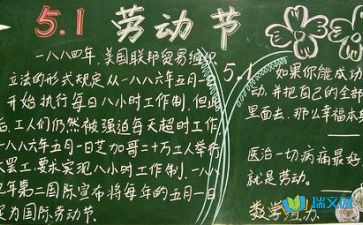 5.1 劳动节
一八八四年,美国联邦贸易组织
立法的形式规定从一八八六年五月一
开始执行每日八小时工作制,但此
后,工人们仍然被强迫每天超时工作
八八六年五月一日芝加哥二十万工人举行
大罢工要求实现八小时工作制,一八八
九年第二国际宣布将每年的五月一日
定为国际劳动节.
5.1
如果你能成功
动,并把自己的全部
里面去,那么幸福本身
医治一切病痛最好
就是劳动.
数学组办
瑞文网